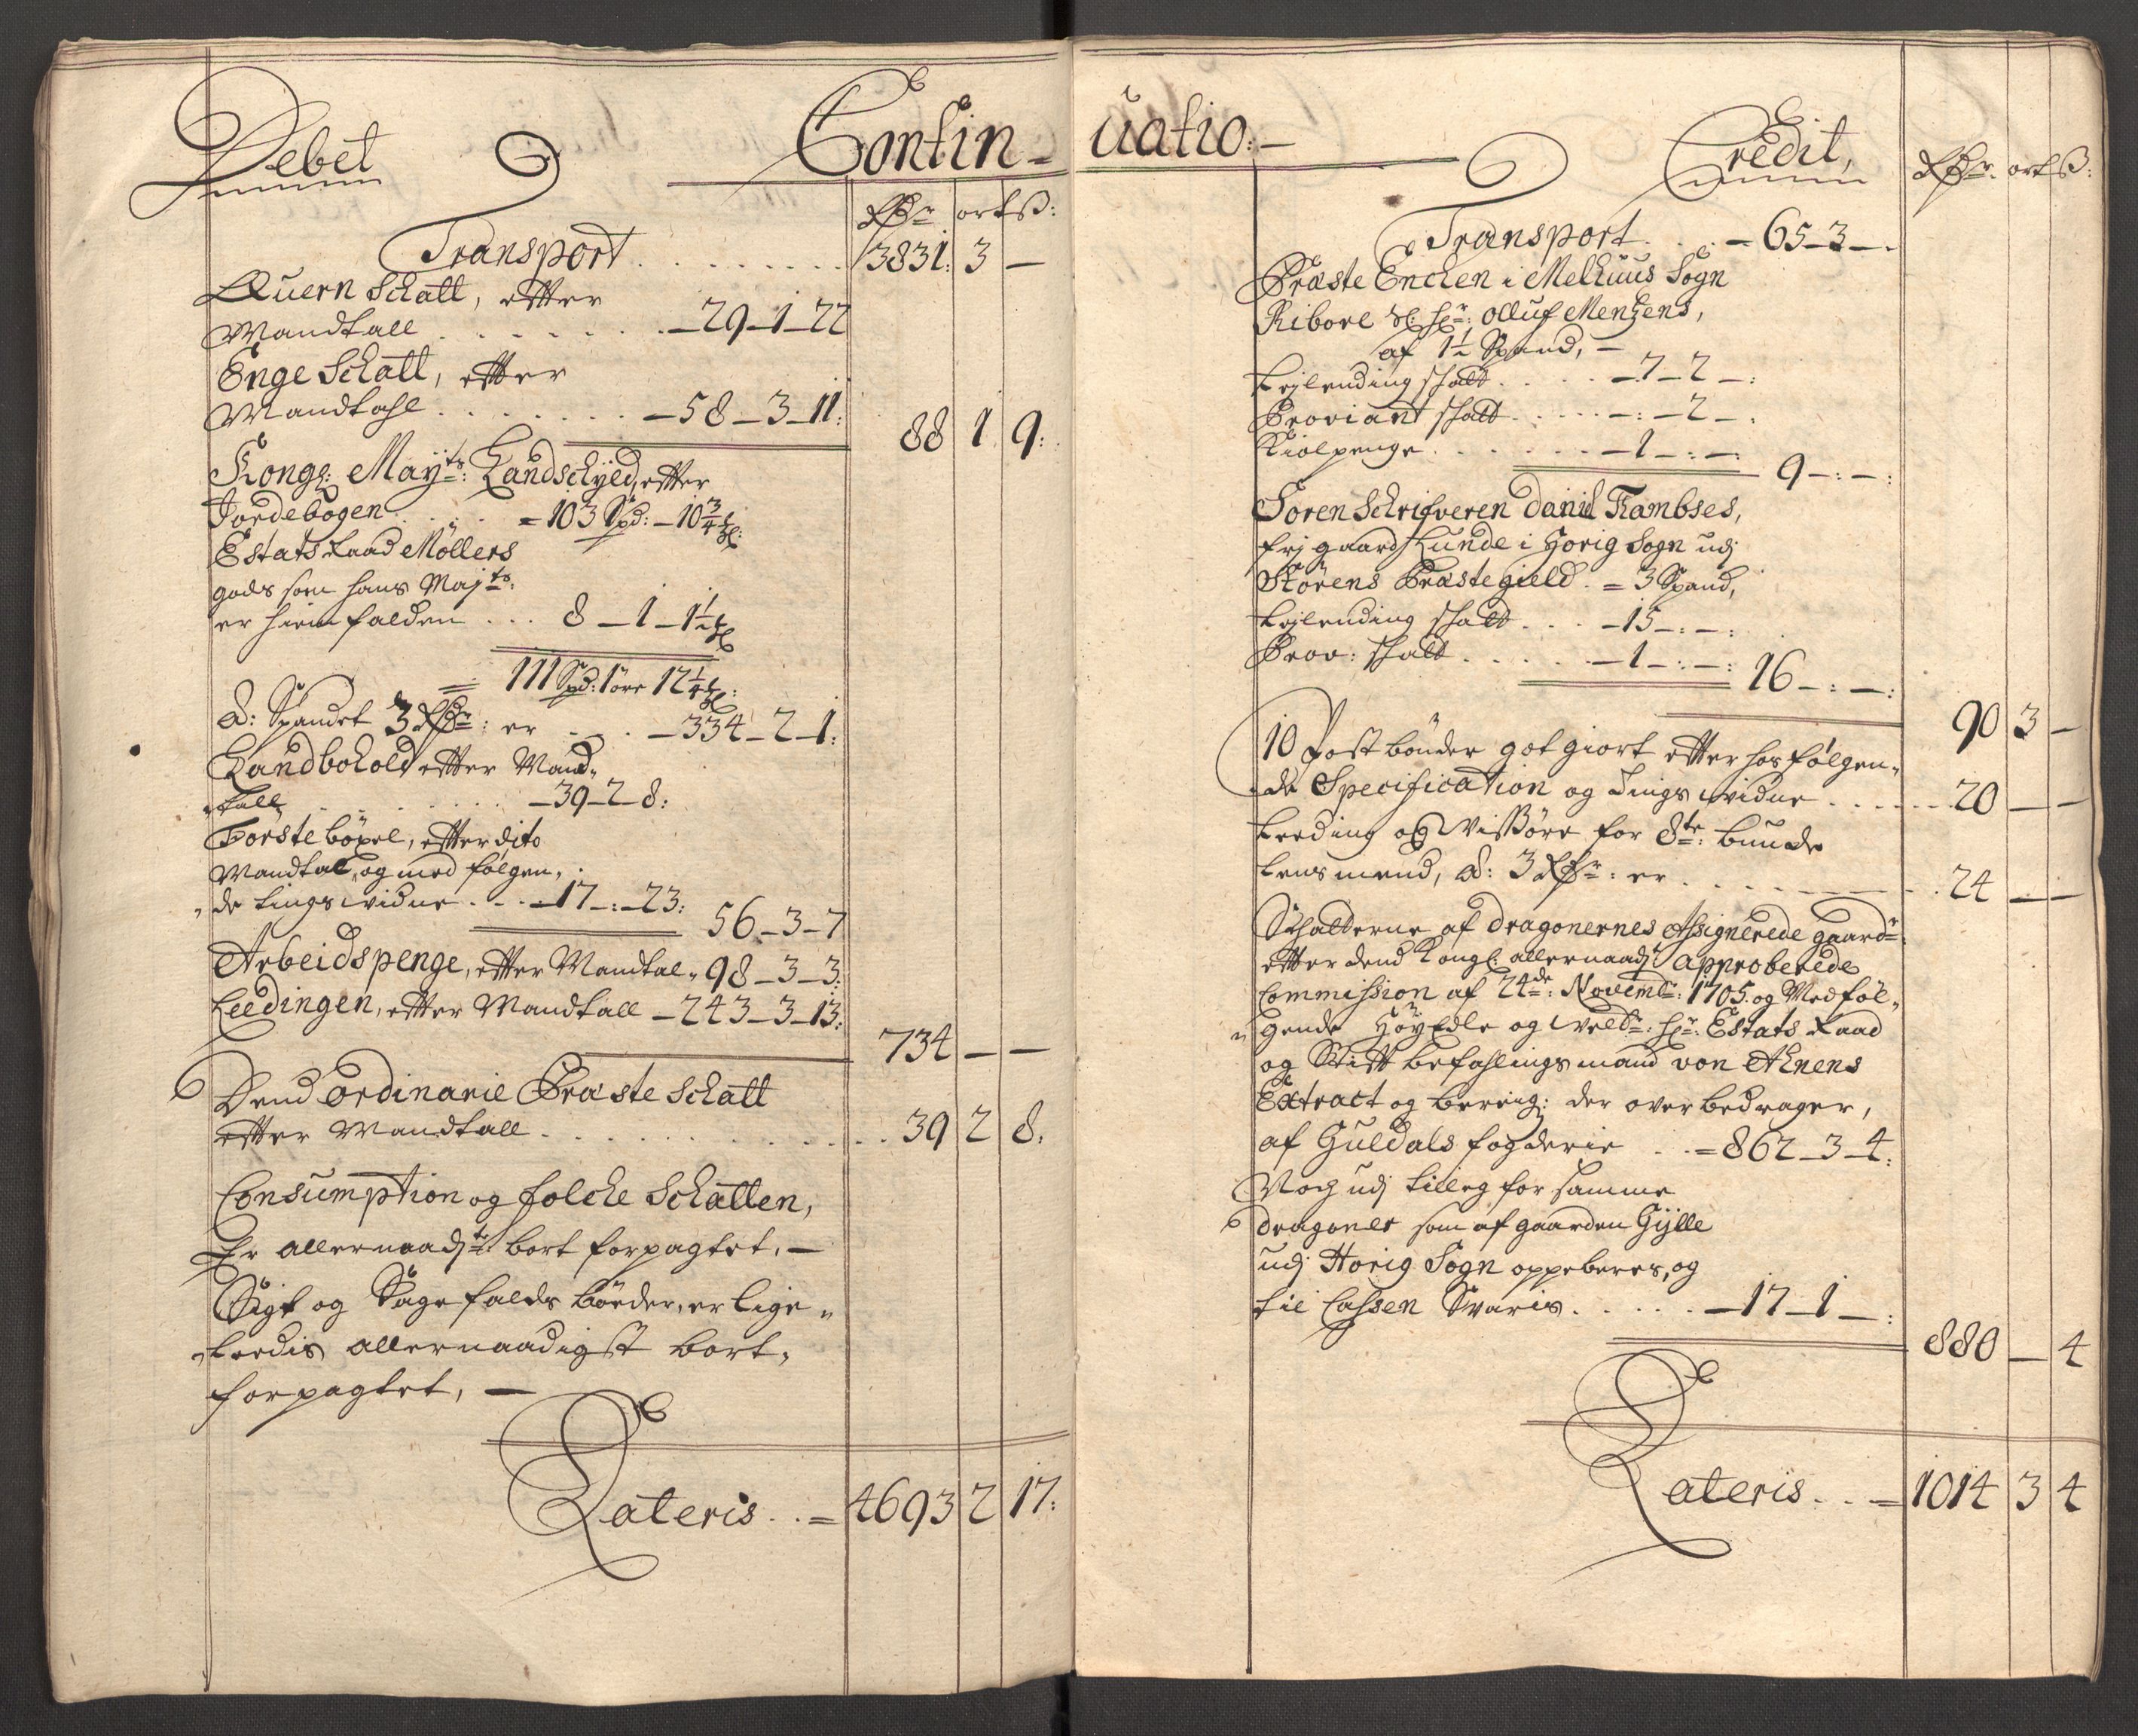 Debet
Contin-
Rdr ort ß:
Transport . . . . . . . . . 3831: 3 —
Quern Schatt, efter
Mandtall . . . . . . . —29—1—22
Enge Schatt, efter
Mandtahl . . . . . . . —58—3—11:
88 1 9:
Kongl: Mayts: Landschyld, efter
Jordebogen . . . . =103 Spd: —10¾ ℳl:
Estats Raad Möllers
gods som hans Majts:
er hiemfalden . . . 8—1—1½
= 111 Spd: 1 öre 12¼
a: Spandet 3 Rdr: er . . . —334—2—1:
Landbohold efter Mand„
„tall . . . . . . . . —39—2—8:
Förste böxel, efter dito
Mandtal, og med følgen„
„de tings widne . . . —17—:—23:
56—3—7
Arbeidspenge, efter Mandtal„ 98—3—3:
Leedingen, efter Mandtall —243—3—13:
734 — —
Dend ordinarie Præste Schatt
efter Mandtall . . . . . . . . . . . . 39 2 8:
Consumption og folche Schatten,
Er allernaadste: bort forpagtet. —
Sigt og Sagefalds bøder, er lige„
„leedis allernaadigst bort„
forpagtet, —
Lateris . . = 4693 2 17:
uatio:—
Credit,
Rdr. ort ß:
Transport . . . —65—3—.
Præste Enchen i Melhuus Sogn
Ribore Sl: Hr: Olluf Mentzens,
af 1½ Spand, —
Lejlending skatt . . . . —7—2—:
Proviant skatt . . . . . —:—2—.
Kiolpenge . . . . . . . —1—:—:
9—:—:
Soren Schrifveren Daniel Rambses,
frj gaard Lunde i Horig Sogn udj
Störens Præstegield . = 3 Spand,
Lejlending skatt . . . —15—:—:
Prov: skatt . . . . . —1—:—: 16—:—:
90 3 —
10 Postbønder got giort efter hosfølgen„
„de Specification og Tings widne . . . . . . 20 — —
Leeding og Wissøre for 8te: bunde
Lensmend, a: 3 Rdr: er . . . . . . . . . . 24 — —
Schatterne af dragonernes Assignerede gaarde
efter dend Kongl: allernaadst approberede
Commission af 24de: Novembr: 1705. og Medføl„
„gende Høyedle og welbr: Hr: Estats Raad
og Stift befahlingsmand von Ahnens
Extract og bereig: der over bedrager,
af Guldals fogderie . . =862—3—4:
Noch udj tilleg for samme
dragoner som af gaarden Gylle
udj Horig Sogn oppeberes, og
til Cassen Svaris . . . . . —17—1—:
880 — 4
Lateris . . = 1014 3 4